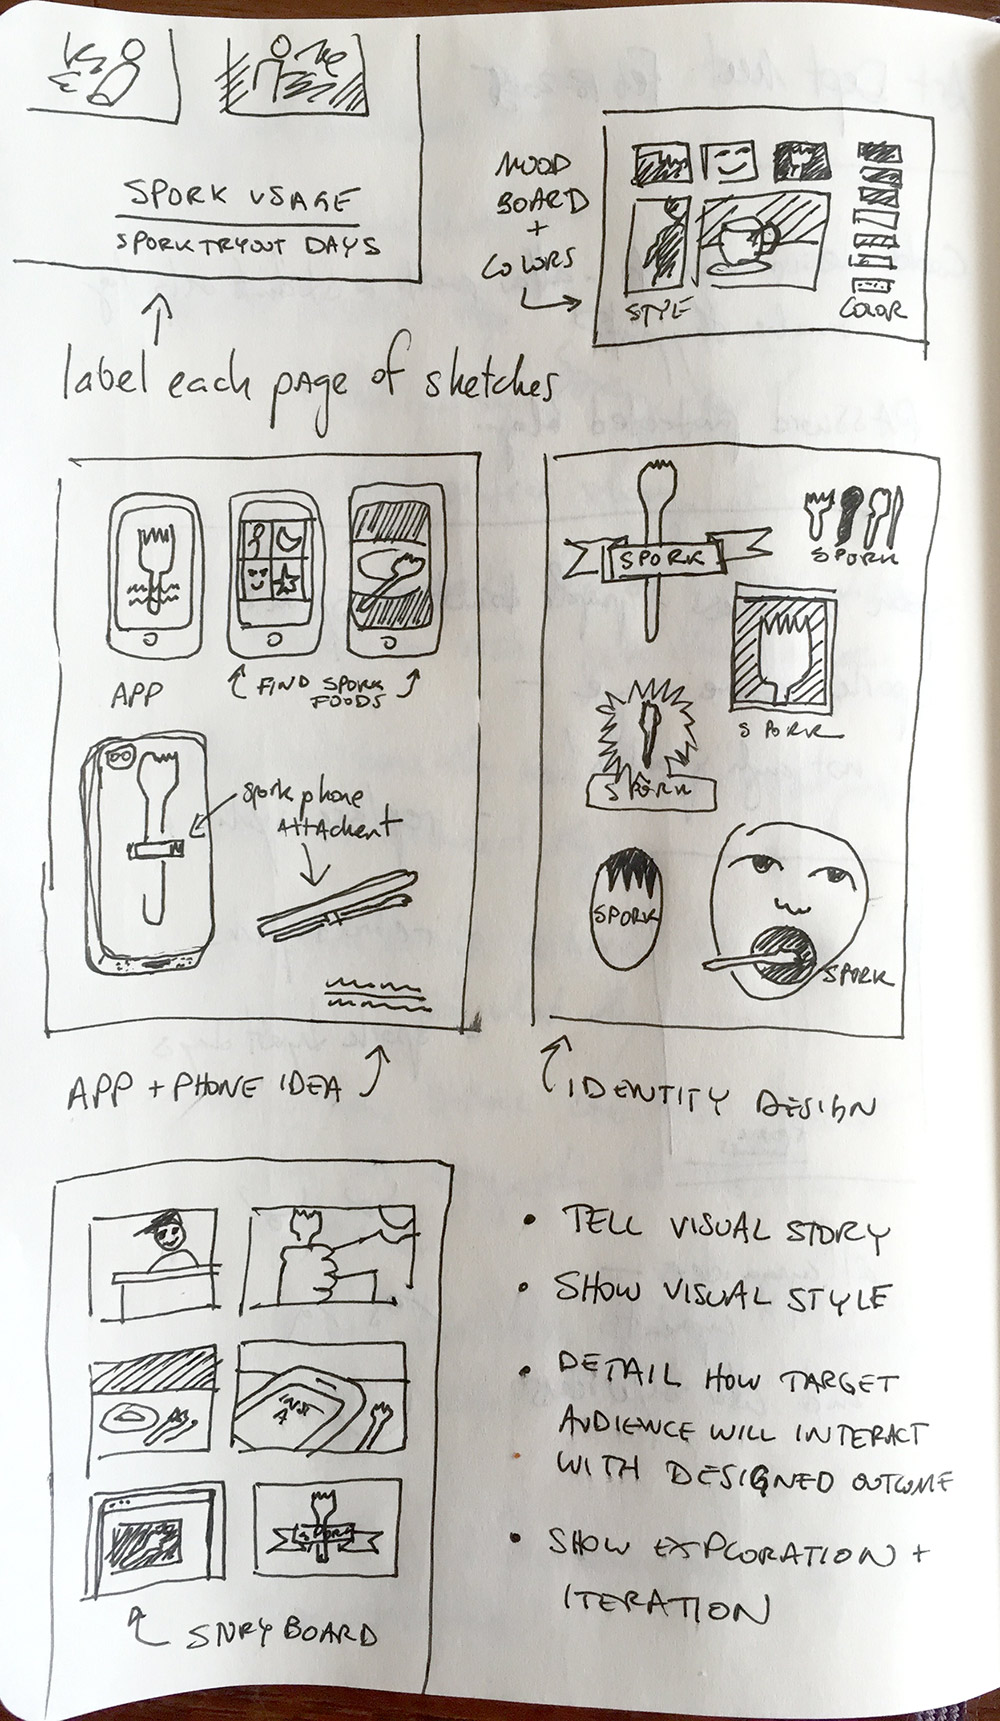 SPORK USAGE
SPORK TRYOUT DAYS
label each page of sketches
MOOD
BOARD
+
COLORS
STYLE
COLOR
APP
FIND SPORK
FOODS
spork phone
ATTACHENT
APP + PHONE IDEA
SPORK
SPORK
SPORK
SPORK
SPORK
SPORK
IDENTITY DESIGN
SPORK
STORYBOARD
• TELL VISUAL STORY
• SHOW VISUAL STYLE
• DETAIL HOW TARGET
AUDIENCE WILL INTERACT
WITH DESIGNED OUTCOME
• SHOW EXPLORATION +
ITERATION